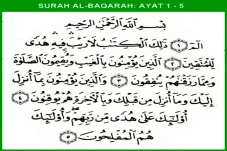 SURAH AL-BAQARAH: AYAT 1 - 5
بِسْمِ اللَّهِ الرَّحْمَٰنِ الرَّحِيمِ
الٓمٓ ﴿١﴾ ذَٰلِكَ الْكِتَٰبُ لَا رَيْبَ فِيهِ هُدًى
لِّلْمُتَّقِينَ ﴿٢﴾ الَّذِينَ يُؤْمِنُونَ بِالْغَيْبِ وَيُقِيمُونَ الصَّلَوٰةَ
وَمِمَّا رَزَقْنَٰهُمْ يُنفِقُونَ ﴿٣﴾ وَالَّذِينَ يُؤْمِنُونَ بِمَا أُنزِلَ
إِلَيْكَ وَمَا أُنزِلَ مِن قَبْلِكَ وَبِالْآخِرَةِ هُمْ يُوقِنُونَ ﴿٤﴾
أُولَٰئِكَ عَلَىٰ هُدًى مِّن رَّبِّهِمْ وَأُولَٰئِكَ
هُمُ الْمُفْلِحُونَ ﴿٥﴾